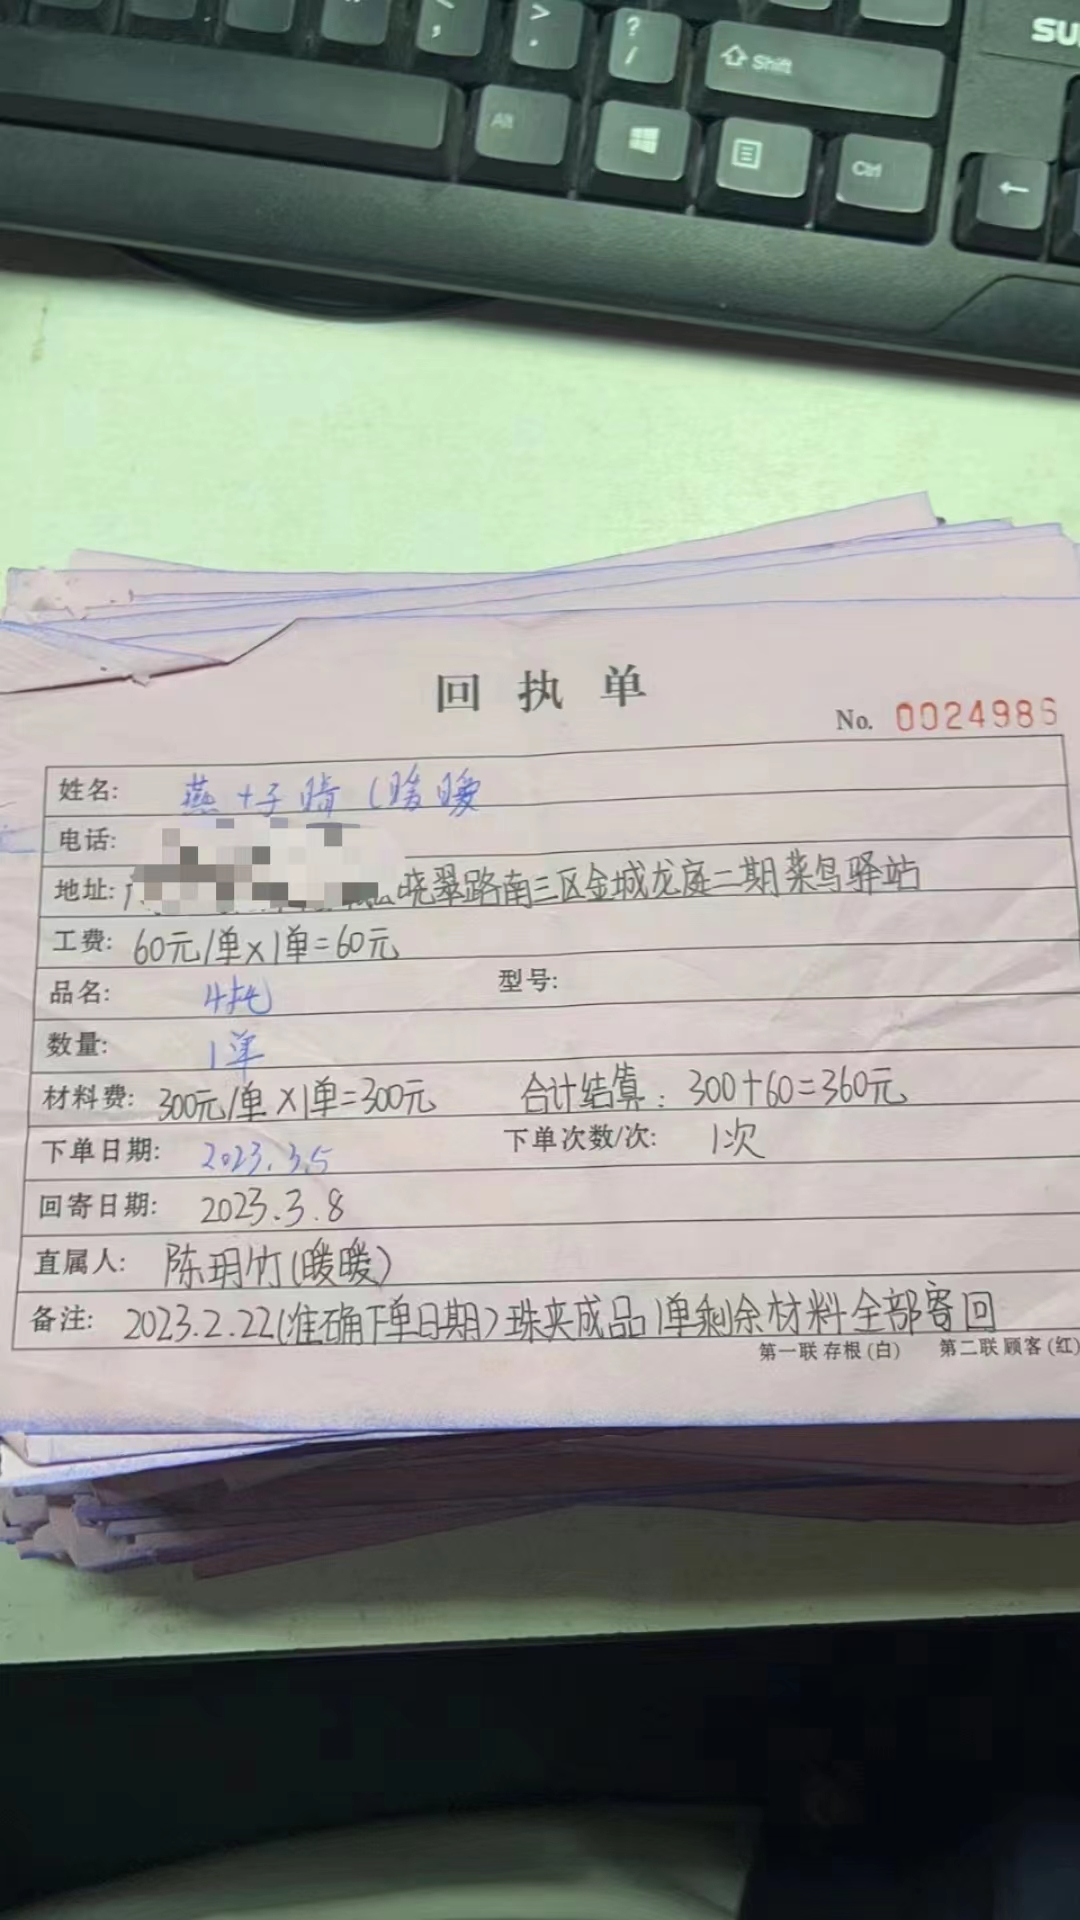 < ,
> .
? /
Shift
SU
Alt
Ctrl
←
回执单
No. 0024986
姓名: 燕十子晴(暖暖
电话:
地址: 晓翠路南三区金城龙庭二期菜鸟驿站
工费: 60元/单×1单=60元
品名: 型号:
数量: 1单
材料费: 300元/单×1单=300元 合计结算: 300+60=360元
下单日期: 2023.3.5 下单次数/次: 1次
回寄日期: 2023.3.8
直属人: 陈玥竹(暖暖)
备注: 2023.2.22(准确下单日期)珠夹成品1单剩余材料全部寄回
第一联 存根(白) 第二联 顾客(红)